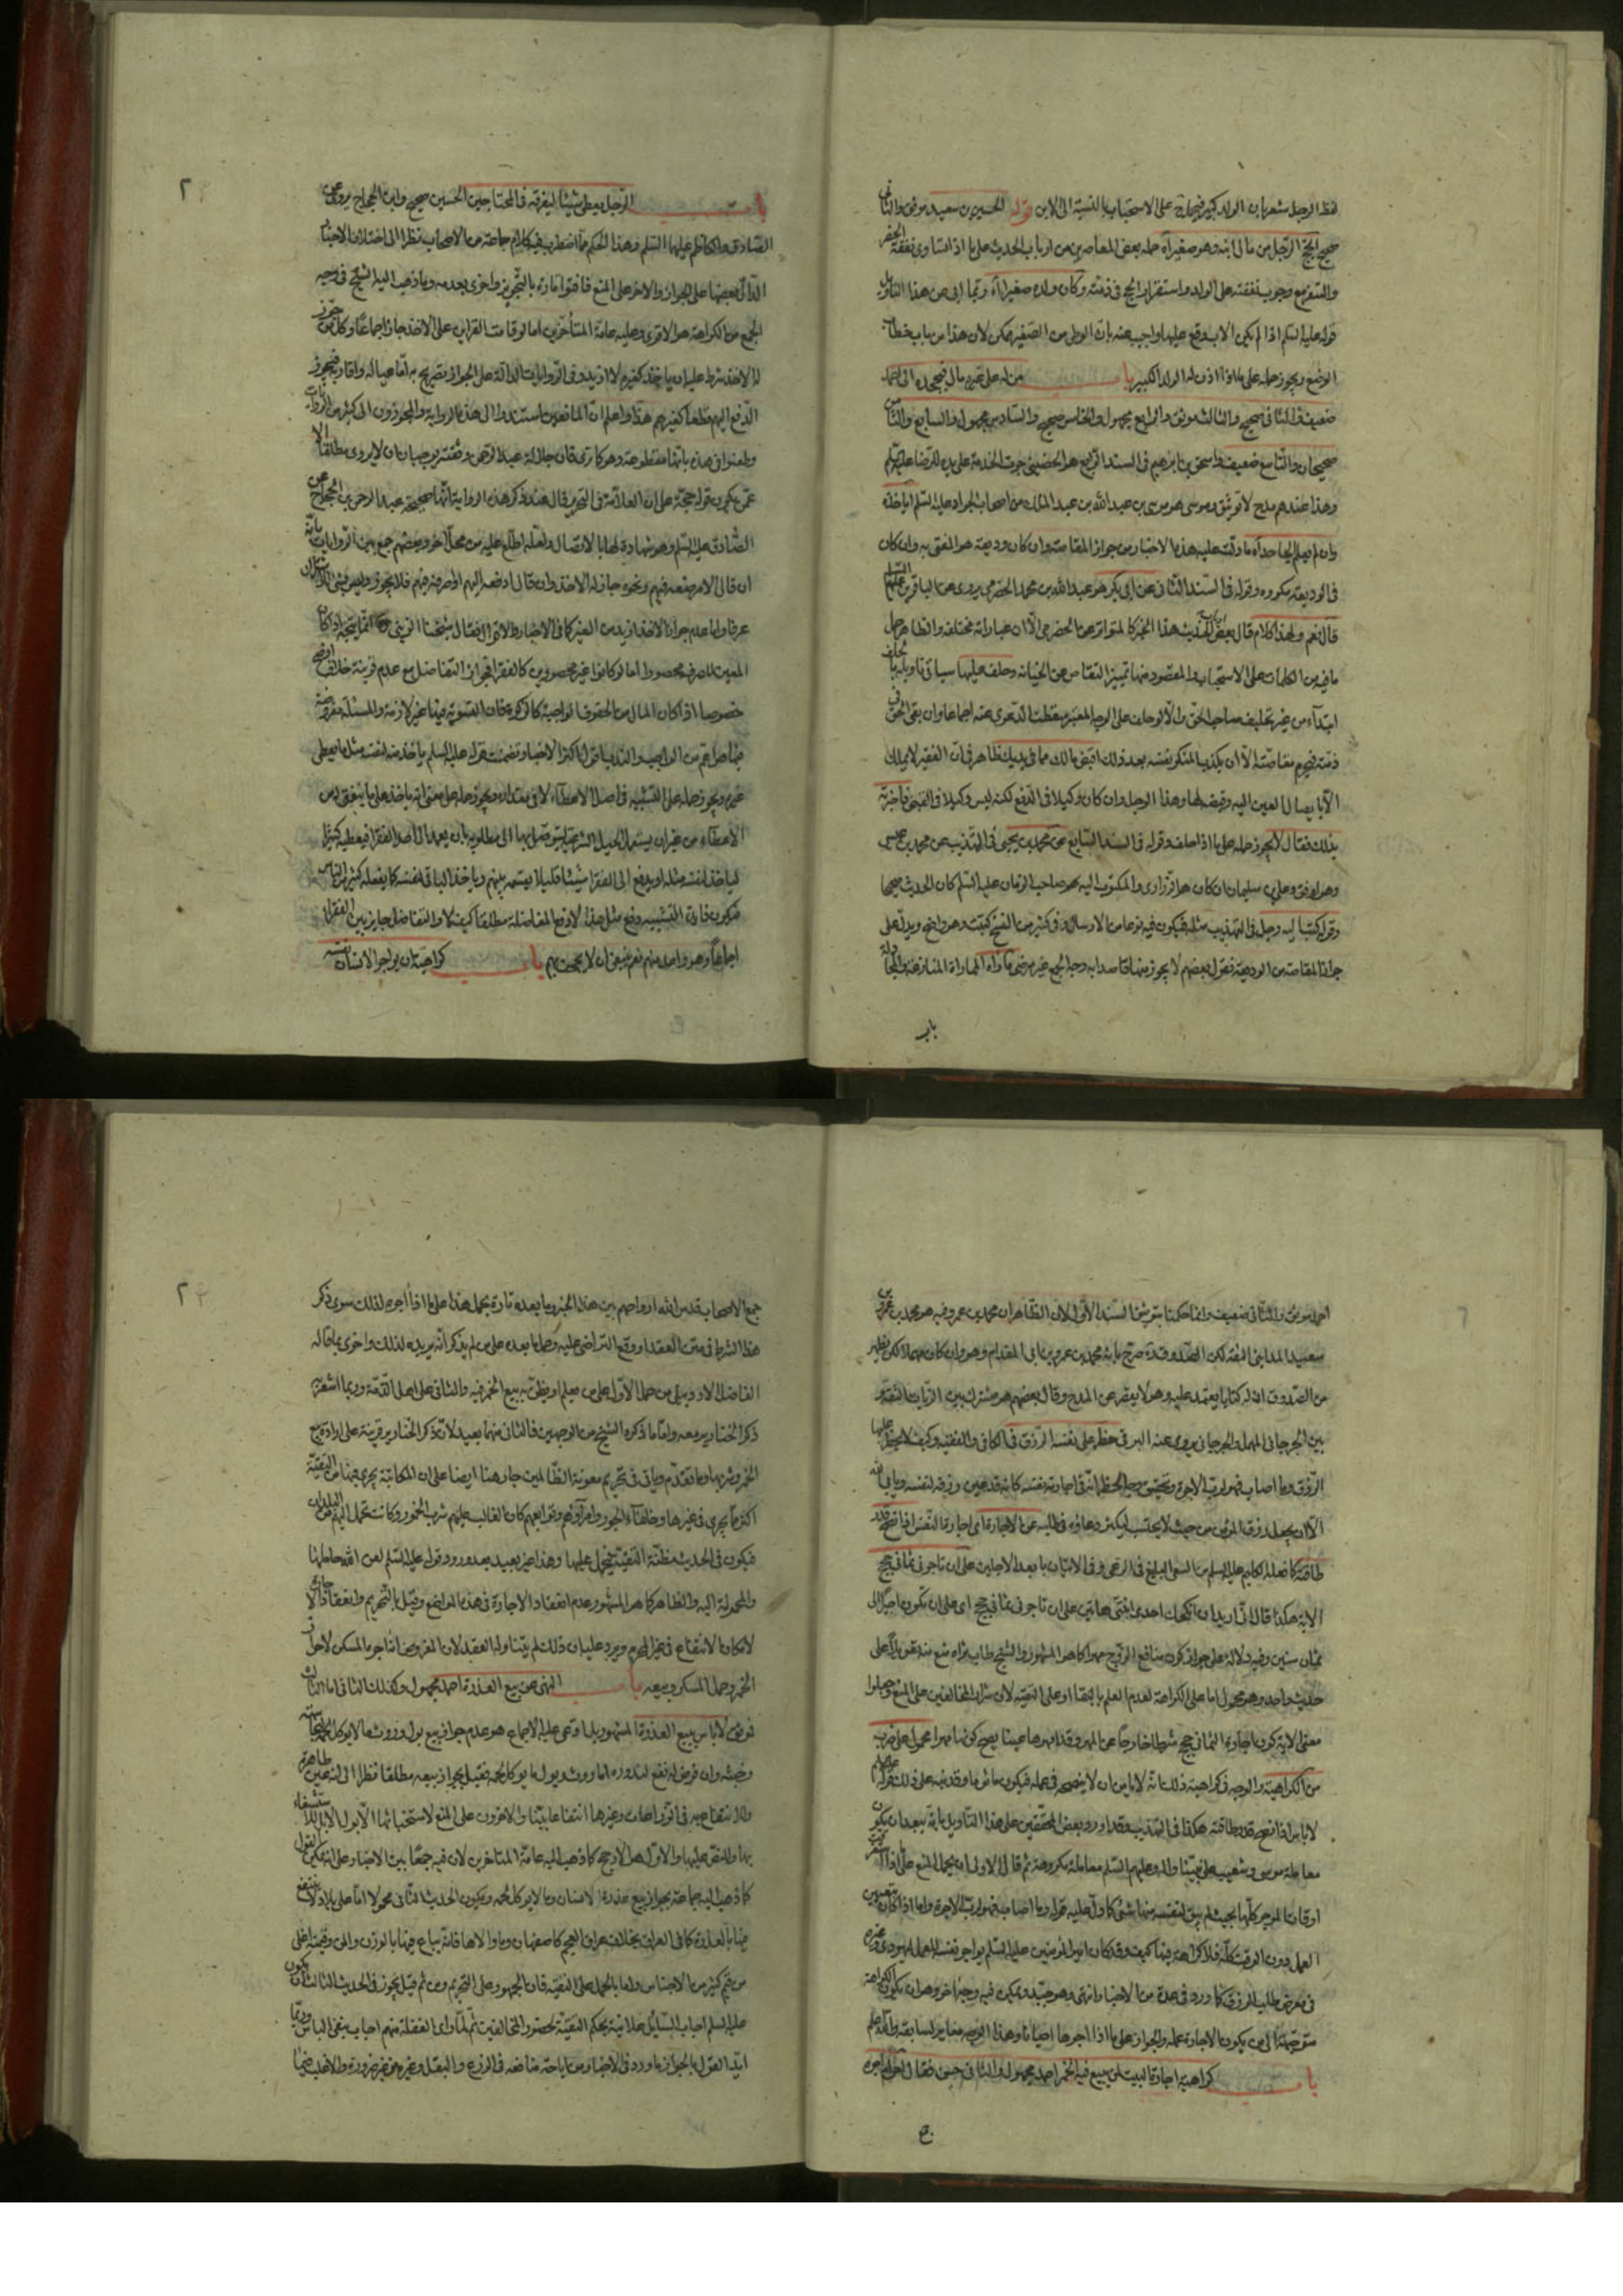 لفظ الرجل مشعر بان الولد كبير على الاستحباب بالنسبة الى الابن قوله الحسين بن سعيد موثق والثاني
صحيح الحج الرجل من مال ابنه وهو صغير آه حمله بعض المعاصرين من ارباب الحديث على ما اذا تساوى نفقة الحضر
والسفر مع وجوب نفقته على الولد واستقرار الحج في ذمته وكان ولده صغيرا آه وربما ابى من هذا التأويل
قوله عليه السلم اذا لم يكن الاب وقع عليها واجيب عنه بان الوطى من الصغير ممكن لان هذا من باب خطاب
الوضع ويجوز حمله على ما اذا اذن له الولد الكبير باب من له على غيره مال فيجحده الى احمد
ضعيف والثاني صحيح والثالث موثق والرابع مجهول والخامس صحيح والسادس مجهول والسابع والثامن
صحيحان والتاسع ضعيف واسحق بن ابرهيم في السند الرابع هو الحضيني جرت الخدمة على يده للرضا عليه السلم
وهذا عندهم مدح لا توثيق وموسى هو موسى بن عبد الله بن عبد الملك من اصحاب الجواد عليه السلم
ما دلت عليه هذه الاخبار من جواز المقاصة وان كان وديعة هو المفتى به وان كان
في الوديعة مكروه وقوله في السند الثاني عن ابي بكر هو عبد الله بن محمد الحضرمي يروى عن الباقرين عليهما السلم
قال نعم ولهذا كلام قال بعض هذا الخبر كالمتواتر عن الحضرمي الا ان عباراته مختلفة والظاهر حمل
ما فيه من الكلمات على الاستحباب والمقصود منها تمييز التقاص من الخيانة وحلف عليها سيأتي تأويله بما يحلف
ابتداء من غير تحليف صاحب الحق والا لو حلف على الوجه المعتبر سقطت الدعوى عنه اجماعا وان بقى الحق في
ذمته فيحرم مقاصته الا ان يكذب المنكر نفسه بعد ذلك اقبض مالك مما في يديك ظاهر في ان الفقير لا يملك
الا بايصال العين اليه وقبضه لها وهذا الرجل وان كان وكيلا في الدفع لكنه ليس وكيلا في القبض فاخبرته
بذلك فقال لا يجوز حمله على ما اذا حلف وقوله في السند السابع عن محمد بن يحيى في التهذيب عن محمد بن عيسى
وهو اوفق وعلي بن سليمان ان كان هو الزراري والمكتوب اليه هو صاحب الزمان عليه السلم كان الحديث صحيحا
وقوله كتب اليه رجل في التهذيب مثله فيكون فيه نوعا من الارسال وفي كثير من النسخ كتبت وهو واضح ويدل على
جواز المقاصة من الوديعة فقول بعضهم لا يجوز منها قاصدا به وجه الجمع غير مرضي
باب
باب الرجل يعطى شيئا ليفرقه في المحتاجين الحسين صحيح وابن الحجاج يروى عن
الصادق والكاظم عليهما السلم وهذا الحكم مما اضطرب فيه كلام جماعة من الاصحاب نظرا الى اختلاف الاخبار
الدال بعضها على الجواز والاخر على المنع فافتوا تارة بالتجويز واخرى بعدمه وما ذهب اليه الشيخ في وجه
الجمع من الكراهة هو الاقوى وعليه عامة المتأخرين اما لو قامت القراين على الاخذ جاز اجماعا وكل من جوز
له الاخذ شرط عليه ان ياخذ كغيره لا ازيد وفي الروايات الدالة على الجواز تصريح به اما عياله واقاربه فيجوز
الدفع اليهم قطعا كغيرهم هذا واعلم ان المانعين استندوا الى هذه الرواية والمجوزون الى كثير من الروايات
وطعنوا في هذه بانها مقطوعة وهو كما ترى فان جلالة عبد الرحمن وثقته يوجبان ان لا يروى مطلقا الا
عمن يكون قوله حجة على ان العلامة في التحرير قال عند ذكر هذه الرواية انها صحيحة عبد الرحمن بن الحجاج عن
الصادق عليه السلم وهو شهادة لها بالاتصال ولعله اطلع عليه من محل آخر وبعضهم جمع بين الروايات بانه
ان قال الامر ضعه فيهم ونحوه جاز له الاخذ وان قال ادفعه اليهم او اصرفه فيهم فلا يجوز
عرفا واما عدم جواز الاخذ ازيد من الغير كما في الاخبار والاقوال فقال شيخنا الزيني انما يتجه اذا كان
المعين للصرف محصورا اما لو كانوا غير محصورين كالفقراء فجواز التفاضل مع عدم قرينة خلافه اوضح
خصوصا اذا كان المال من الحقوق الواجبة كالزكوة فان التسوية فيها غير لازمة والمسئلة مفروضة
فيما هو اعم من الواجب والندب اقول اكثر الاخبار تضمنت قوله عليه السلم ياخذ منه لنفسه مثل ما يعطى
غيره ويجوز حمله على التشبيه في اصل الاعطاء لا في مقداره ويجوز حمله على معنى انه ياخذ على ما ينبغي من
الاعطاء من غير ان يستعمل الحيل الشرعية ليتوصل بها الى مطلوبه بان يعمد الى احد الفقراء فيعطيه كثيرا
لياخذ لنفسه مثله او يدفع الى الفقراء شيئا قليلا يقسمه بينهم وياخذ الباقي لنفسه كما يفعله كثير من الناس
فيكون فايدة التشبيه دفع مثل هذا لا دفع المفاضلة مطلقا كيف لا والتفاضل جايز بين الفقراء
اجماعا وهو واحد منهم نعم ينبغي ان لا يجحف بهم باب كراهية ان يواجر الانسان نفسه
احمد موثق والثاني ضعيف وانما حكمنا بتوثيق السند الاول لان الظاهر ان محمد بن عمرو فيه هو محمد بن عمرو بن
سعيد المدايني الثقة لكن الصدوق ره صرح بانه محمد بن عمرو بن ابي المقدام وهو وان كان مهملا لكن يظهر
من الصدوق ان له كتابا يعتمد عليه وهو لا يقصر عن المدح وقال بعضهم هو مشترك بين الزيات الثقة و
بين الجرجاني المهمل والجرجاني يروى عنه البرقي حظر على نفسه الرزق في الكافي والفقيه وكيف لا يحظر عليها
الرزق وما اصاب فهو لرب الاجرة وتحقيق وجه الحظر انه في اجارة نفسه كانه قد عين رزقه لنفسه ويأبى الله
الا ان يجعل رزق المؤمن من حيث لا يحتسب ليكثر دعاؤه في طلبه عن الاجارة اى اجارة النفس اذا نصح قدر
طاقته كما فعله الكليم عليه السلم من السعي البليغ في الرعي وفي الاتيان بابعد الاجلين على ان تاجرني ثماني حجج
الاية هكذا قال اني اريد ان انكحك احدى ابنتي هاتين على ان تاجرني ثماني حجج اى على ان تكون اجيرا لي
ثمان سنين وفيه دلالة على جواز كون منافع الزوج مهرا كما هو المشهور والشيخ طاب ثراه منع منه تعويلا على
حديث واحد وهو محمول اما على الكراهة لعدم العلم بالبقاء او على التقية لان المخالفين على المنع وجعلوا
معنى الاية كون اجارة الثماني حجج شرطا خارجا عن المهر وقد امهرها عينا يصح كونها مهرا محمول على ضرب
من الكراهية والوجه في كراهية ذلك انه لا يامن ان لا ينصحه في عمله فيكون ماثوما وقد نبه على ذلك قوله عليه السلم
لا باس اذا نصح قدر طاقته هكذا في التهذيب وقد اورد بعض المحققين على هذا التاويل بانه يبعد ان يكون
معاملة موسى وشعيب على نبينا واله وعليهم السلم معاملة مكروهة ثم قال الاولى ان يحمل المنع على ما اذا استغرقت
اوقات الموجر كلها بحيث لم يبق لنفسه منها شئ كما دل عليه قوله وما اصاب فهو لرب الاجرة واما اذا كان بتعيين
العمل دون الوقت كله فلا كراهة فيها كيف وقد كان امير المؤمنين عليه السلم يواجر نفسه للعمل ليهودي وغيره
في معرض طلب الرزق كما ورد في عدة من الاخبار انتهى وهو جيد ويمكن فيه وجه اخر وهو ان يكون الكراهة
متوجهة الى من يكون الاجارة عمله والجواز على ما اذا اجرها احيانا وهذا الوجه مغاير لسابقه والله اعلم
باب كراهية اجارة البيت لمن يبيع فيه الخمر احمد مجهول والثاني حسن فقال حرام اجره
جمع
جمع الاصحاب قدس الله ارواحهم بين هذا الخبر وما بعده تارة بحمل هذا على ما اذا آجره لذلك سوى ذكر
هذا الشرط في متن العقد او وقع التراضى عليه وحمل ما بعده على من لم يذكر انه يريده لذلك واخرى بما قاله
الفاضل الاردبيلي من حمل الاول على من يعلم او يظن به بيع الخمر فيه والثاني على اهل الذمة وربما اشعر به
ذكر الخنازير معه واما ما ذكره الشيخ من الوجهين فالثاني منهما بعيد لان ذكر الخنازير قرينة على ارادة بيع
الخمر وشربها وما تقدم وياتي في تحريم معونة الظالمين جار هنا ايضا على ان المكاتبة يجرى فيها من التقية
اكثر ما يجرى في غيرها وخلفاء الجور وامراؤهم وتوابعهم كان الغالب عليهم شرب الخمور وكانت تحمل اليهم من البلدان
فيكون في الحديث مظنة التقية فيحمل عليها وهذا غير بعيد بعد ورود قوله عليه السلم لعن الله حاملها
والمحمولة اليه والظاهر كما هو المشهور عدم انعقاد الاجارة في هذه المواضع وقيل بالتحريم وانعقاد الاجارة
لامكان الانتفاع في غير المحرم ويرد عليه ان ذلك لم يتناوله العقد لان المفروض انه اجر المسكن لاحراز
الخمر وحمل المسكر وبيعه باب النهي عن بيع العذرة احمد مجهول وكذلك الثاني اما الثالث
فموثق لا باس ببيع العذرة المشهور بل ادعى عليه الاجماع هو عدم جواز بيع بول وروث ما لا يوكل لحمه لنجاسته
وخبثه وان فرض له نفع لندوره اما روث وبول ما يوكل لحمه فقيل بجواز بيعه مطلقا نظرا الى انه عين طاهرة
والانتفاع به في الزراعات وغيرها انتفاعا بينا والاخرون على المنع لاستخباثها الا بول الابل للاستشفاء
بها والمتفق عليها والاول هو الارجح كما ذهب اليه عامة المتاخرين لان فيه جمعا بين الاخبار وعلى انه يمكن القول
كما ذهب اليه جماعة بجواز بيع عذرة الانسان وما لا يوكل لحمه ويكون الحديث الثاني محمولا اما على بلاد لا ينتفع
فيها بالعذرة كما في العراق بخلاف عراق العجم كاصفهان وما والاها فانه يباع فيها بالوزن والى وقيمته اغلى
من قيم كثير من الاجناس واما بالحمل على التقية فان الجمهور على التحريم ومن ثم قيل يجوز في الحديث الثالث ان يكون
عليه السلم اجاب السايل علانية بحكم التقية لحضور المخالفين ثم لما رأى الغفلة منهم اجاب بنفي الباس وربما
ايد القول بالجواز ما ورد في الاخبار من اباحة منافعه في الزرع والبقل وغيره من غير ضرورة والاغلب فيها